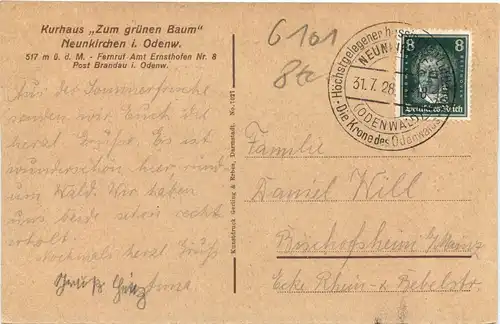 Kurhaus „Zum grünen Baum"
Neunkirchen i. Odenw.
517 m ü. d. M. - Fernruf-Amt Ernsthofen Nr. 8
Post Brandau i. Odenw.
6101
Höchstgelegener
31.7.28
(ODENWALD)
Die Krone des Odenwaldes
8
8
Deutsches Reich
Aus der Sommerfrische
senden wir Euch die
herzl. Grüße. Es ist
wunderschön hier rund
um Wald. Wir haben
uns beide schon recht
erholt.
Nochmals herzl. Gruß
Kunstdruck Gerling & Erben, Darmstadt. No. 1021
Familie
Daniel Will
Bischofsheim b/Mainz
Ecke Rhein- u. Bebelstr.